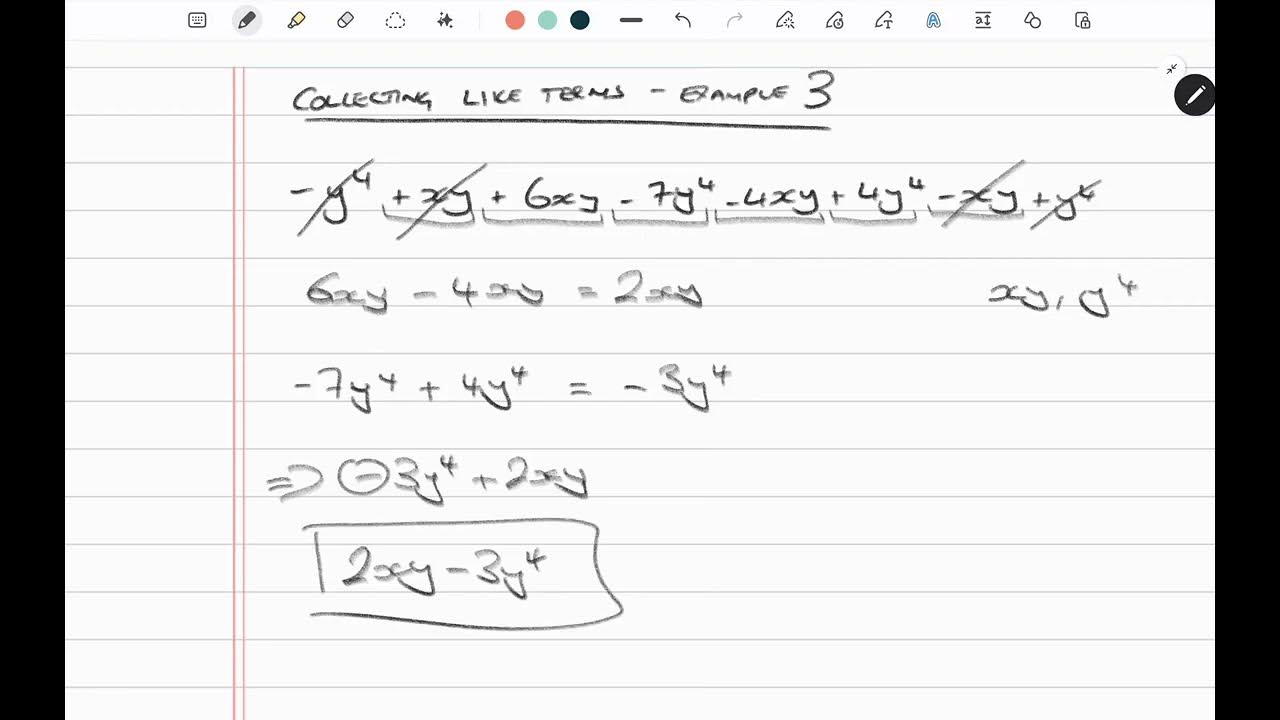 COLLECTING LIKE TERMS - EXAMPLE 3
-y⁴ + xy + 6xy - 7y⁴ - 4xy + 4y⁴ - xy + y⁴
6xy - 4xy = 2xy
xy, y⁴
-7y⁴ + 4y⁴ = -3y⁴
⇒ -3y⁴ + 2xy
2xy - 3y⁴